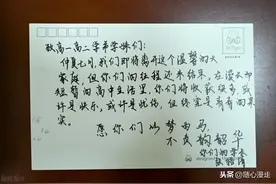 致高一高二学弟学妹们:
仲夏七月,我们即将离开这个温馨的大
家庭,但你们的征程还未结束,在漫长却
短暂的高中生活里,你们将收获很多,或
许是快乐,或许是忧伤,但终究是有着的果
实。
愿你们以梦为马,
不负韶华
你们的学长
@随心漫走